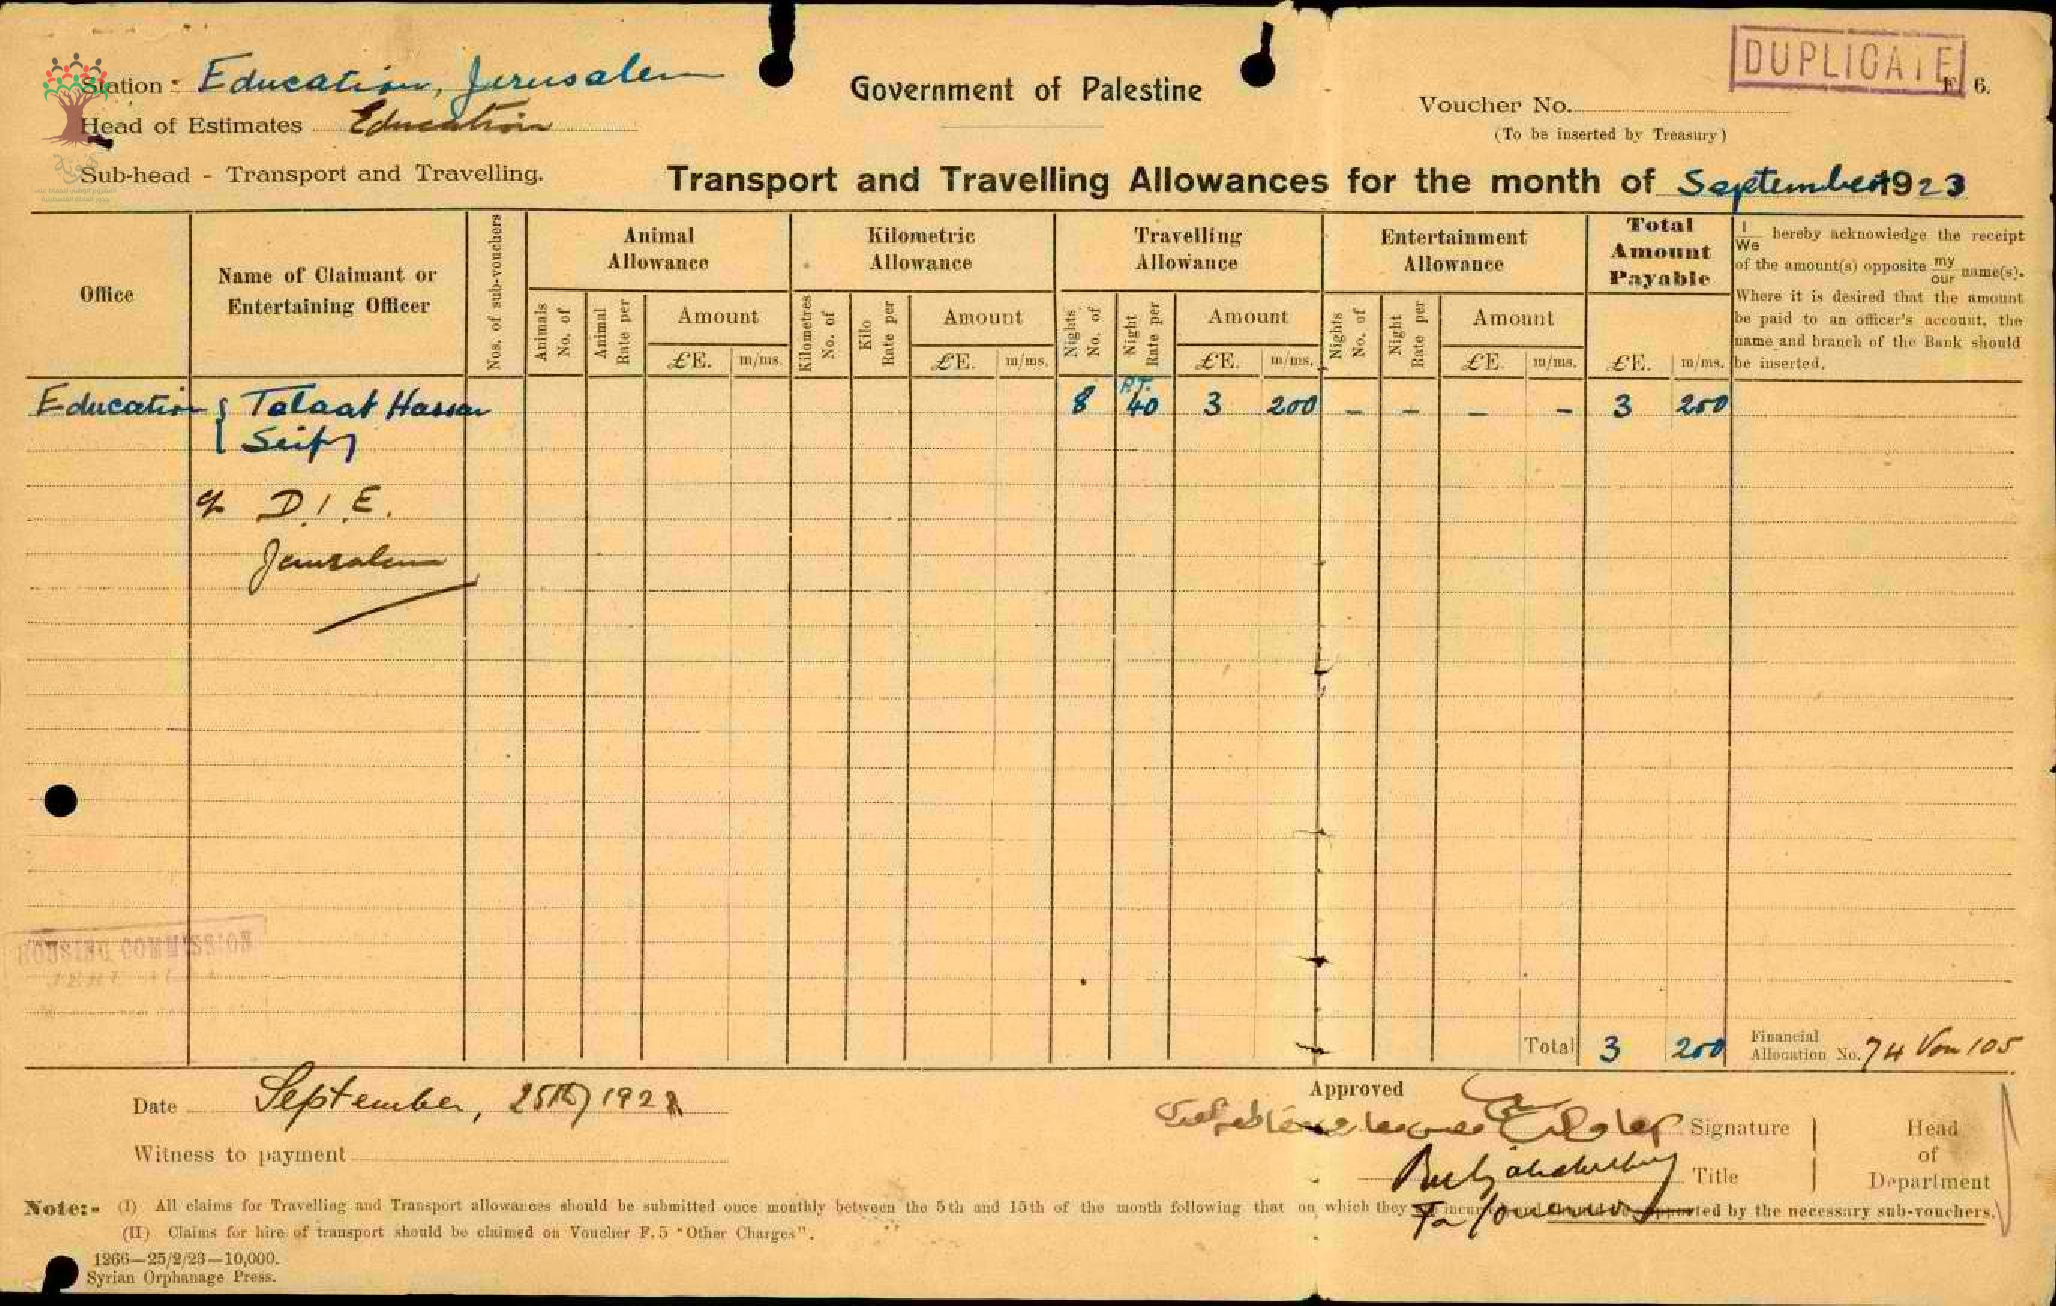 DUPLICATE
Station: Education, Jerusalem
Government of Palestine
F. 6.
Voucher No.
Head of Estimates Education
(To be inserted by Treasury)
Sub-head - Transport and Travelling.
Transport and Travelling Allowances for the month of September 1923
Office
Name of Claimant or Entertaining Officer
Nos. of sub-vouchers
Animal Allowance
Animals No. of
Animal Rate per
Amount
£E. m/ms.
Kilometric Allowance
Kilometres No. of
Kilo Rate per
Amount
£E. m/ms.
Travelling Allowance
Nights No. of
Night Rate per
Amount
£E. m/ms.
Entertainment Allowance
Nights No. of
Night Rate per
Amount
£E. m/ms.
Total Amount Payable
£E. m/ms.
I/We hereby acknowledge the receipt
of the amount(s) opposite my/our name(s).
Where it is desired that the amount
be paid to an officer's account, the
name and branch of the Bank should
be inserted.
Education { Talaat Hassan 8 P.T. 40 3 200 – – – – 3 200
Seify
of D.I.E.
Jerusalem
HOUSING COMMISSION
Total 3 200
Financial Allocation No. 74 Von 105
Date September, 25th 1923
Approved
Signature
Witness to payment
Title
Head of Department
Note:- (I) All claims for Travelling and Transport allowances should be submitted once monthly between the 5th and 15th of the month following that on which they supported by the necessary sub-vouchers.
(II) Claims for hire of transport should be claimed on Voucher F.5 "Other Charges".
1266—25/2/23—10,000.
Syrian Orphanage Press.